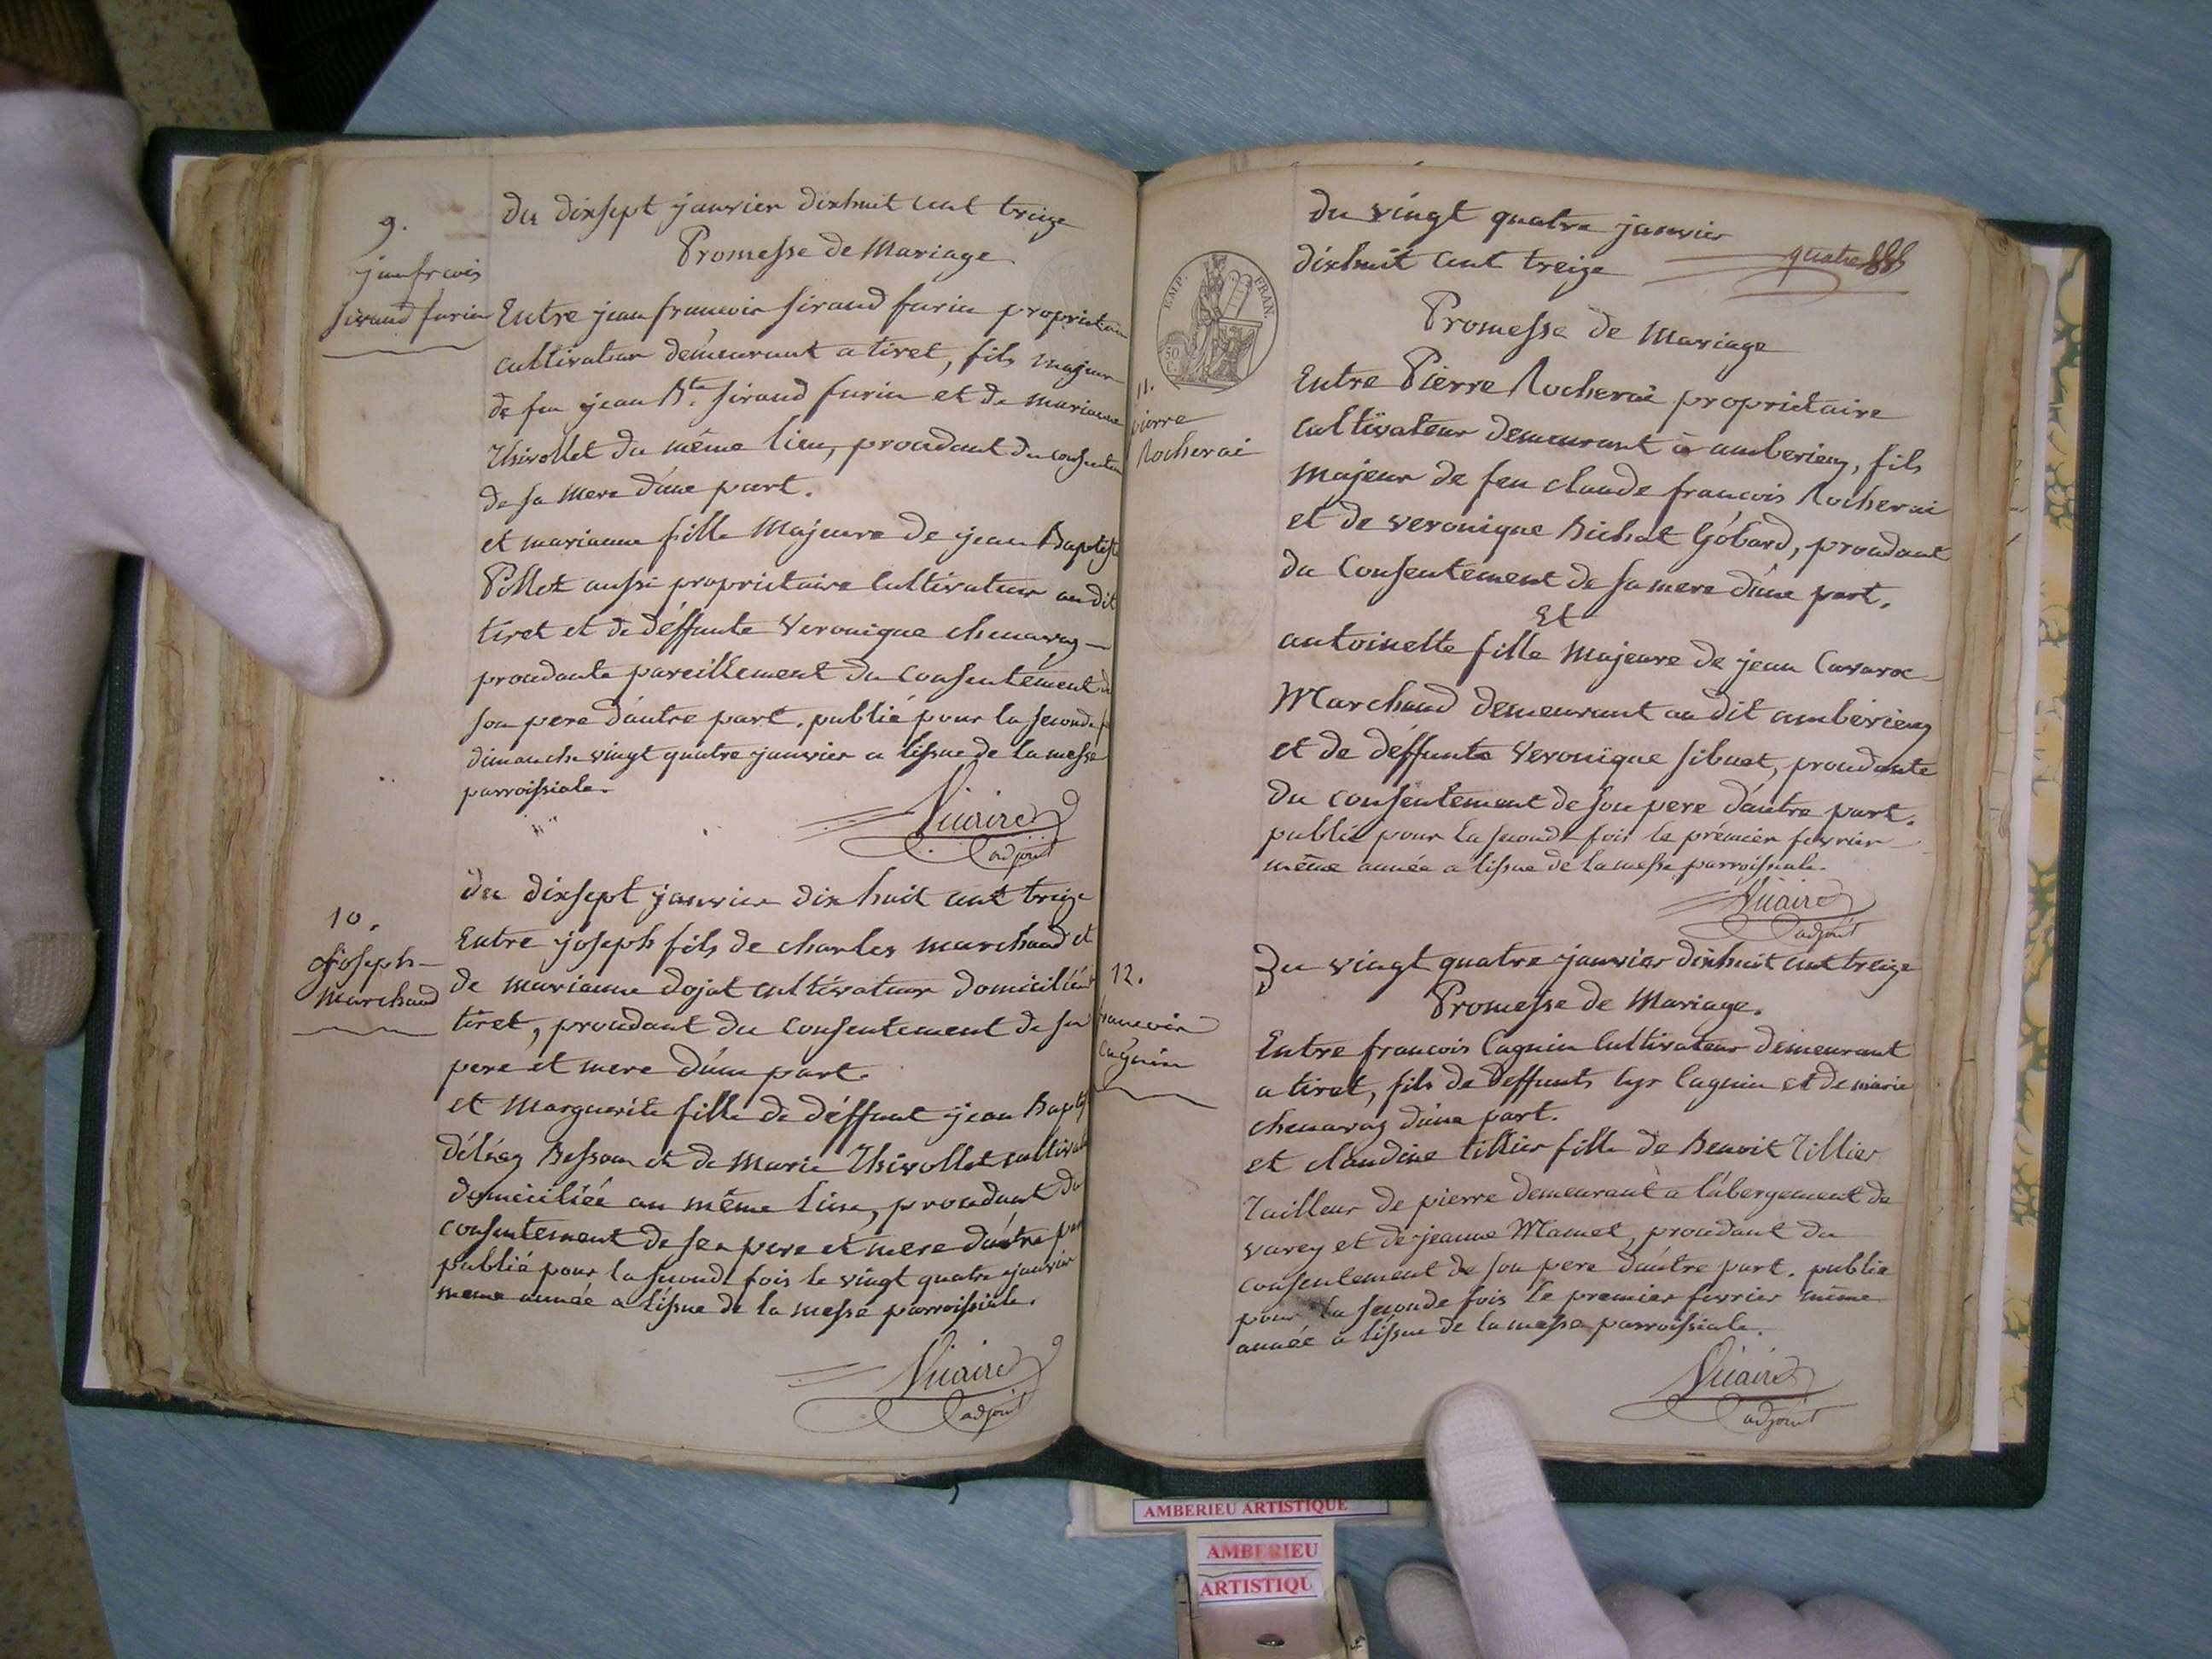 9.
jean frcois
sirand furin
du dixsept janvier dixhuit cent treize
Promesse de Mariage
Entre jean francois sirand furin proprietaire
cultivateur demeurant a tiret, fils majeur
de feu jean Bte. sirand furin et de marianne
Thivollet du même lieu, procedant du consentem
de sa mere d'une part.
et marianne fille Majeure de jean Baptiste
Pollet aussi proprietaire Cultivateur audit
tiret et de déffunte Veronique chenavaz
procedante pareillement du consentement de
son pere d'autre part. publié pour la seconde f
dimanche vingt quatre janvier a lissue de la messe
parroissiale.
Vicaire
adjoint
10.
Joseph
Marchand
du dixsept janvier dix huit cent treize
Entre joseph fils de charles marchand et
de marianne dojat cultivateur domicilié a
tiret, procedant du consentement de ses
pere et mere d'une part.
et Marguerite fille de déffunt jean Baptis
Besson et de Marie Thivollet cultivat
domiciliée au même lieu, procedant du
consentement de ses pere et mere d'autre par
publié pour la seconde fois le vingt quatre janvier
meme année a lissue de la messe parroissiale.
Vicaire
adjoint
du vingt quatre janvier
dixhuit cent treize
quatre
EMP. FRAN.
50
C.
11.
pierre
Rocherai
Promesse de Mariage
Entre Pierre Rocherai proprietaire
Cultivateur demeurant à amberieux, fils
Majeur de feu claude francois Rocherai
et de veronique Bichat Gobard, procedant
du Consentement de sa mere d'une part.
Et
antoinette fille Majeure de jean Cavaroc
Marchand demeurant au dit amberieux
et de déffunte Veronique sibuet, procedante
du consentement de son pere d'autre part.
publié pour la seconde fois le prémier fevrier
même année a lissue de la messe parroissiale.
Vicaire
adjoint
12.
francois
Cagnin
Du vingt quatre janvier dixhuit cent treize
Promesse de Mariage.
Entre francois Cagnin Cultivateur demeurant
a tiret, fils de deffunts Cagnin et de marie
chenavaz d'une part.
et claudine tillier fille de Benoit Tillier
Tailleur de pierre demeurant à l'abergement de
varey et de jeanne Mamet, procedant du
consentement de son pere d'autre part. publié
pour la seconde fois le premier fevrier même
année a lissue de la messe parroissiale.
Vicaire
adjoint
AMBERIEU ARTISTIQUE
AMBERIEU
ARTISTIQU